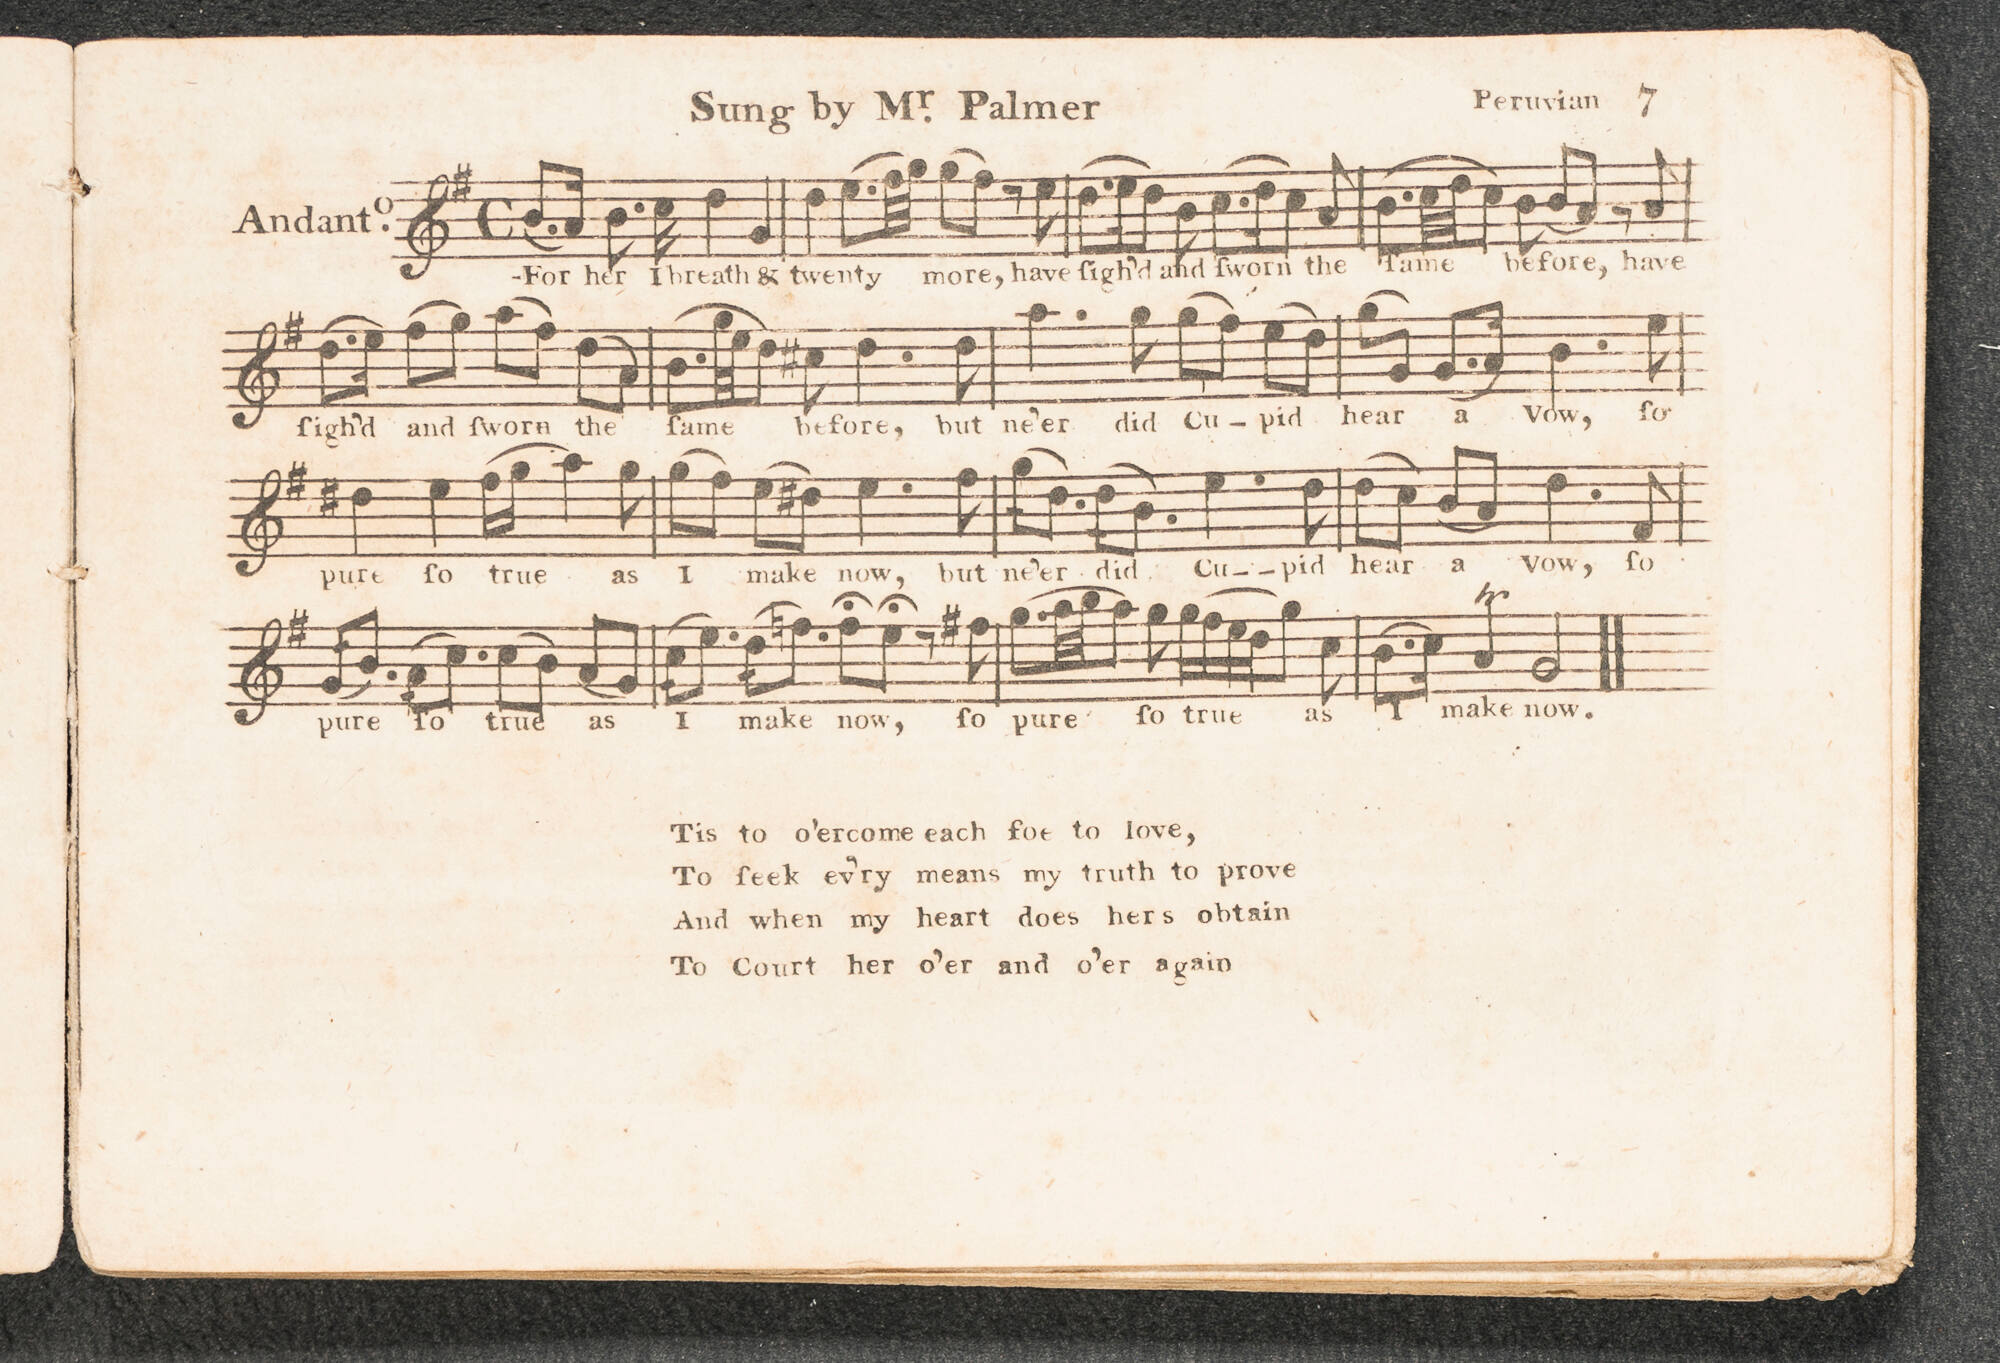 Sung by Mr. Palmer
Peruvian 7
Andanto.
-For her I breath & twenty more, have ſigh'd and ſworn the ſame before, have
ſigh'd and ſworn the ſame before, but ne'er did Cu - pid hear a Vow, ſo
pure ſo true as I make now, but ne'er did Cu - - pid hear a Vow, ſo
pure ſo true as I make now, ſo pure ſo true as I make now.
Tis to o'ercome each foe to love,
To ſeek ev'ry means my truth to prove
And when my heart does hers obtain
To Court her o'er and o'er again